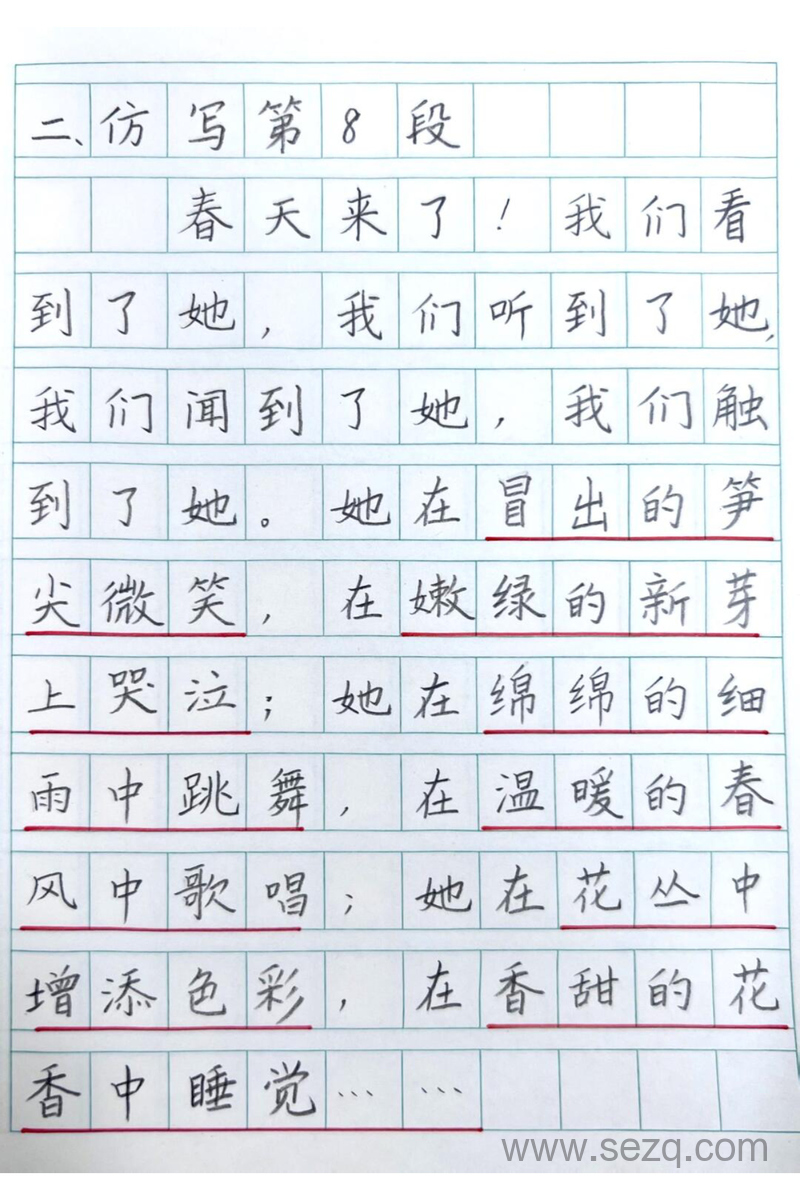 二、仿写第8段
春天来了！我们看
到了她，我们听到了她，
我们闻到了她，我们触
到了她。她在冒出的笋
尖微笑，在嫩绿的新芽
上哭泣；她在绵绵的细
雨中跳舞，在温暖的春
风中歌唱；她在花丛中
增添色彩，在香甜的花
香中睡觉……
www.sezq.com